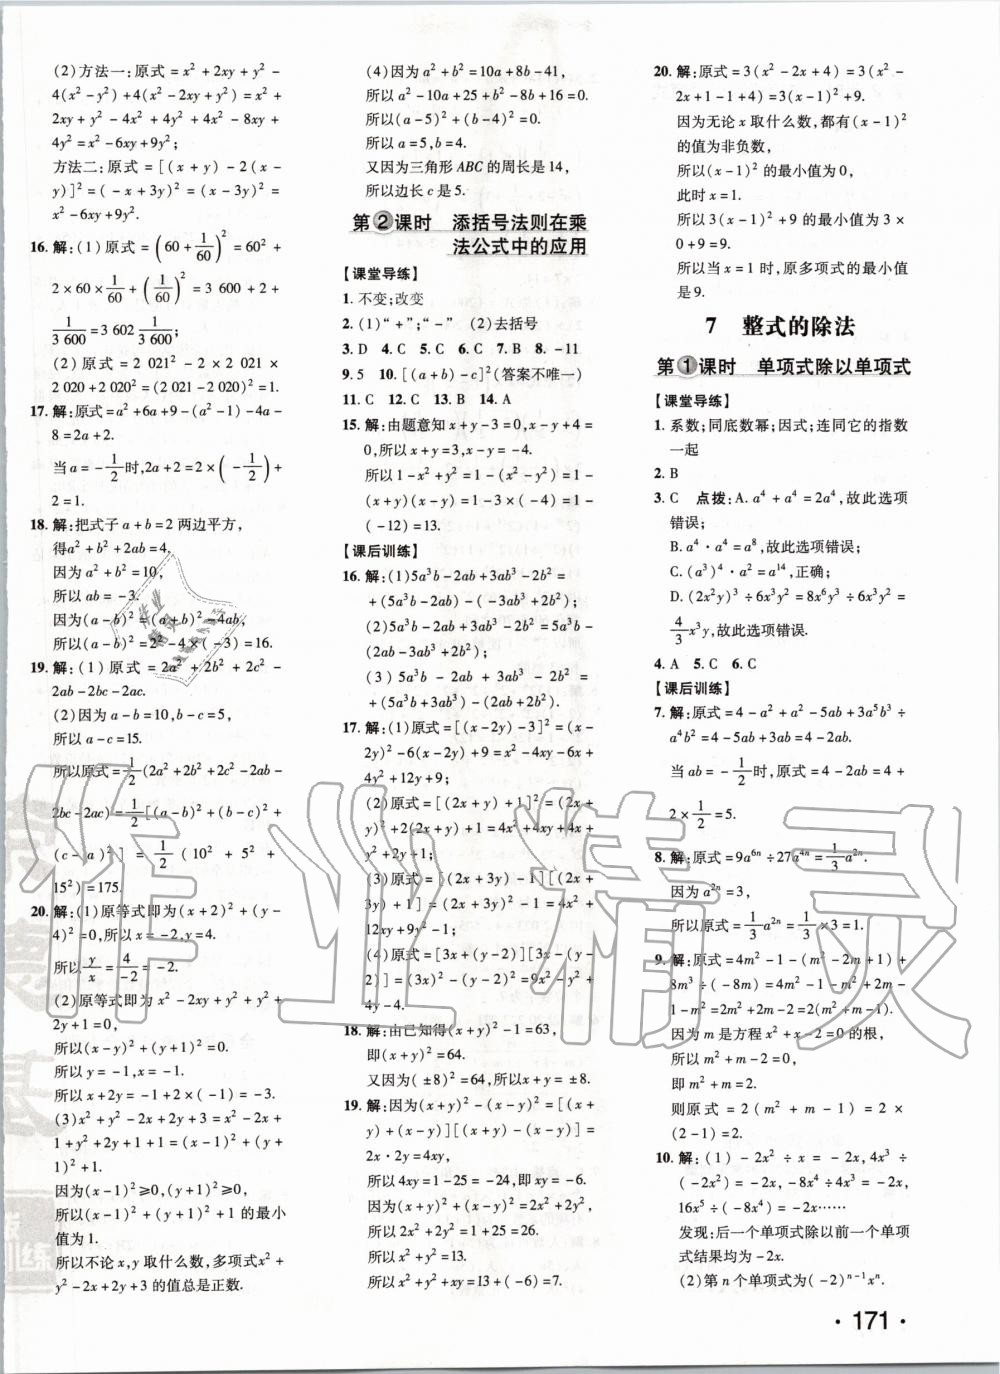 (2)方法一:原式=x²+2xy+y²-
4(x²-y²)+4(x²-2xy+y²)=x²+
2xy+y²-4x²+4y²+4x²-8xy+
4y²=x²-6xy+9y²;
方法二:原式=[(x+y)-2(x-
y)]²=(-x+3y)²=(x-3y)²=
x²-6xy+9y².
16.解:(1)原式=(60+1/60)²=60²+
2×60×1/60+(1/60)²=3 600+2+
1/3 600=3 602 1/3 600;
(2)原式=2 021²-2×2 021×
2 020+2 020²=(2 021-2 020)²=1.
17.解:原式=a²+6a+9-(a²-1)-4a-
8=2a+2.
当a=-1/2时,2a+2=2×(-1/2)+
2=1.
18.解:把式子a+b=2两边平方,
得a²+b²+2ab=4,
因为a²+b²=10,
所以ab=-3.
因为(a-b)²=(a+b)²-4ab,
所以(a-b)²=2²-4×(-3)=16.
19.解:(1)原式=2a²+2b²+2c²-
2ab-2bc-2ac.
(2)因为a-b=10,b-c=5,
所以a-c=15.
所以原式=1/2(2a²+2b²+2c²-2ab-
2bc-2ac)=1/2[(a-b)²+(b-c)²+
(c-a)²]=1/2(10²+5²+
15²)=175.
20.解:(1)原等式即为(x+2)²+(y-
4)²=0,所以x=-2,y=4.
所以y/x=4/-2=-2.
(2)原等式即为x²-2xy+y²+y²+
2y+1=0,
所以(x-y)²+(y+1)²=0.
所以y=-1,x=y=-1.
所以x+2y=-1+2×(-1)=-3.
(3)x²+y²-2x+2y+3=x²-2x+
1+y²+2y+1+1=(x-1)²+(y+
1)²+1.
因为(x-1)²≥0,(y+1)²≥0,
所以(x-1)²+(y+1)²+1的最小
值为1.
所以不论x,y取什么数,多项式x²+
y²-2x+2y+3的值总是正数.
(4)因为a²+b²=10a+8b-41,
所以a²-10a+25+b²-8b+16=0.
所以(a-5)²+(b-4)²=0.
所以a=5,b=4.
又因为三角形ABC的周长是14,
所以边长c是5.
第2课时 添括号法则在乘
法公式中的应用
【课堂导练】
1.不变;改变
2.(1)“+”;“-” (2)去括号
3.D 4.C 5.C 6.C 7.B 8.-11
9.5 10.[(a+b)-c]²(答案不唯一)
11.C 12.C 13.B 14.A
15.解:由题意知x+y-3=0,x-y+4=
0,所以x+y=3,x-y=-4.
所以1-x²+y²=1-(x²-y²)=1-
(x+y)(x-y)=1-3×(-4)=1-
(-12)=13.
【课后训练】
16.解:(1)5a³b-2ab+3ab³-2b²=
+(5a³b-2ab)-(-3ab³+2b²);
(2)5a³b-2ab+3ab³-2b²=5a³b-
(2ab-3ab³+2b²);
(3)5a³b-2ab+3ab³-2b²=
+(5a³b+3ab³)-(2ab+2b²).
17.解:(1)原式=[(x-2y)-3]²=(x-
2y)²-6(x-2y)+9=x²-4xy-6x+
4y²+12y+9;
(2)原式=[(2x+y)+1]²=(2x+
y)²+2(2x+y)+1=4x²+4xy+4x+
y²+2y+1;
(3)原式=[(2x+3y)-1][(2x+
3y)+1]=(2x+3y)²-1=4x²+
12xy+9y²-1;
(4)原式=[3x+(y-2)][3x-(y-
2)]=(3x)²-(y-2)²=9x²-y²+
4y-4.
18.解:由已知得(x+y)²-1=63,
即(x+y)²=64.
又因为(±8)²=64,所以x+y=±8.
19.解:因为(x+y)²-(x-y)²=[(x+
y)+(x-y)][(x+y)-(x-y)]=
2x·2y=4xy,
所以4xy=1-25=-24,即xy=-6.
因为(x+y)²+(x-y)²=2x²+2y²,
所以2x²+2y²=1+25=26.
所以x²+y²=13.
所以x²+y²+xy=13+(-6)=7.
20.解:原式=3(x²-2x+4)=3(x²-
2x+1-1+4)=3(x-1)²+9.
因为无论x取什么数,都有(x-1)²
的值为非负数,
所以(x-1)²的最小值为0,
此时x=1.
所以3(x-1)²+9的最小值为3×
0+9=9.
所以当x=1时,原多项式的最小值
是9.
7 整式的除法
第1课时 单项式除以单项式
【课堂导练】
1.系数;同底数幂;因式;连同它的指数
一起
2.B
3.C 点拨:A.a⁴+a⁴=2a⁴,故此选项
错误;
B.a⁴·a⁴=a⁸,故此选项错误;
C.(a⁴)³·a²=a¹⁴,正确;
D.(2x²y)³÷6x³y²=8x⁶y³÷6x³y²=
4/3x³y,故此选项错误.
4.A 5.C 6.C
【课后训练】
7.解:原式=4-a²+a²-5ab+3a⁵b³÷
a⁴b²=4-5ab+3ab=4-2ab.
当ab=-1/2时,原式=4-2ab=4+
2×1/2=5.
8.解:原式=9a⁶ⁿ÷27a⁴ⁿ=1/3a²ⁿ.
因为a²ⁿ=3,
所以原式=1/3a²ⁿ=1/3×3=1.
9.解:原式=4m²-1-(m²-2m+1)+
8m³÷(-8m)=4m²-1-m²+2m-
1-m²=2m²+2m-2=2(m²+m-1).
因为m是方程x²+x-2=0的根,
所以m²+m-2=0,
即m²+m=2.
则原式=2(m²+m-1)=2×
(2-1)=2.
10.解:(1)-2x²÷x=-2x,4x³÷
(-2x²)=-2x,-8x⁴÷4x³=-2x,
16x⁵÷(-8x⁴)=-2x……
发现:后一个单项式除以前一个单项
式结果均为-2x.
(2)第n个单项式为(-2)ⁿ⁻¹xⁿ.
·171·
作业精灵